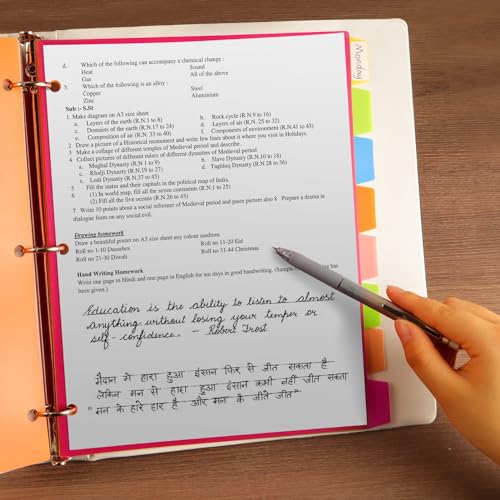 d. Which of the following can accompany a chemical change :
Heat Sound
Gas All of the above
5. Which of the following is an alloy :
Copper Steel
Zinc Aluminium
Sub :- S.St
1 Make diagram on A3 sheet
a. Layers of the earth (R.N.1 to 8) b. Rock cycle (R.N.9 to 16)
c. Domains of the earth (R.N.17 to 24) d. Layers of air (R.N. 25 to 32)
e. Composition of air (R.N. 33 to 40) f. Components of environment (R.N.41 to 45)
2 Draw a picture of Historical monument and write few lines about it where you visit in Holidays.
3 Make a collage of different temples of Medieval period and describe.
4 Collect pictures of different rulers of different dynasties of Medieval period
a. Mughal Dynasty (R.N.1 to 9) b. Slave Dynasty (R.N.10 to 18)
c. Khalji Dynasty (R.N.19 to 27) d. Tughlaq Dynasty (R.N.28 to 36)
e. Lodi Dynasty (R.N.37 to 45)
5 Fill the states and their capitals in the political map of India.
6 (1) In world map, fill all the seven continents (R.N.1 to 25)
(2) Fill all the five oceans (R.N.26 to 45)
7 Write 10 points about a social reformer of Medieval period and paste picture also 8 Prepare a drama in
dialogue form on any social evil.
Drawing homework
Draw a beautiful poster on A3 size sheet any colour medium.
Roll no 1-10 Dussehra Roll no 11-20 Eid
Roll no 21-30 Diwali Roll no 31-44 Christmas
Hand Writing Homework
Write one page in Hindi and one page in English for ten days in good handwriting. (Sample has
been given.)
Education is the ability to listen to almost
anything without losing your temper or
self-confidence. - Robert Frost
मैदान में हारा हुआ इंसान फिर से जीत सकता है
लेकिन मन से हारा हुआ इंसान कभी नहीं जीत सकता
"मन के हारे हार है और मन के जीते जीत"
Monday